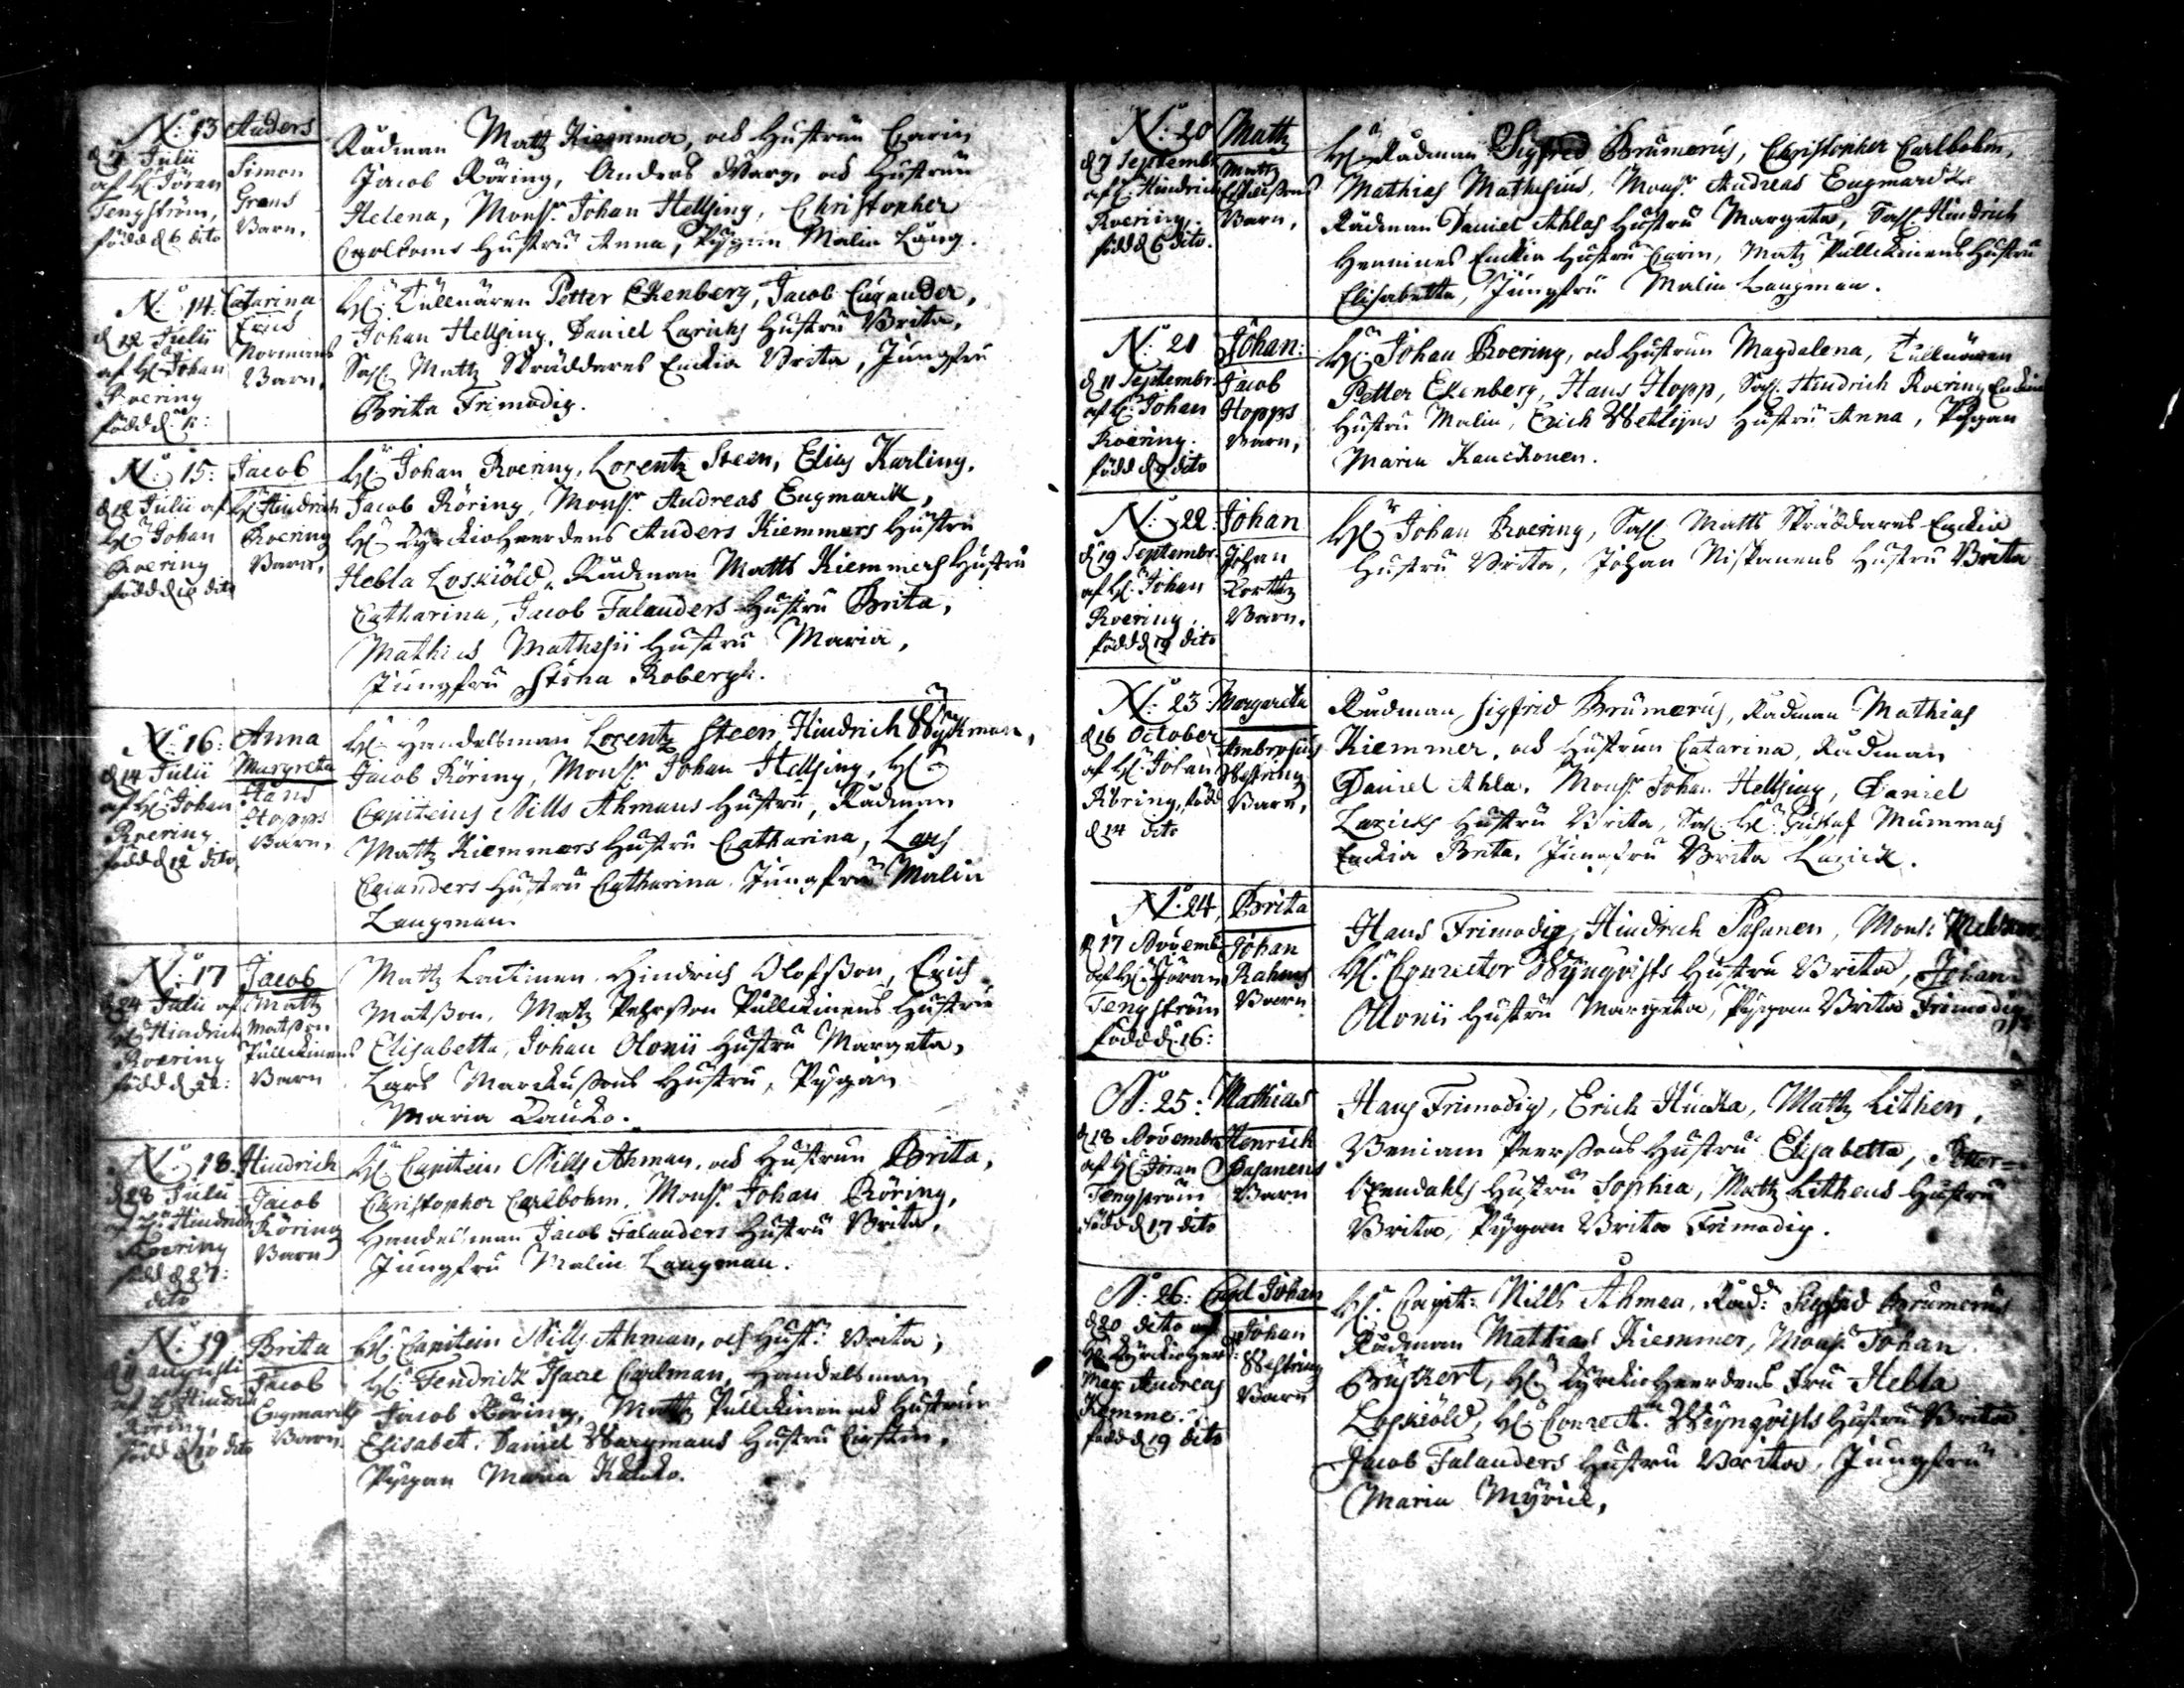 N:o 13
d 7 Julii
af H:r Jöran
Tengström,
född d 6 dito
Anders
Simon
Grans
Barn.
Rådman Matz Kiemmer, och Hustrun Carin
Jacob Röring, Anders Warg, och Hustrun
Helena, Mons:r Johan Hellsing, Christopher
Carlboms Hustru Anna, Pygan Malin Lång.
N:o 14:
d 12 Julii
af H:r Johan
Roering
född d. 11:
Catarina
Erics
Normans
Barn.
H:r Tullnären Petter Ekenberg, Jacob Cajander,
Johan Hellsing, Daniel Larichs Hustru Brita,
Sahl: Mattz Skräddares Enckia Brita, Jungfru
Brita Frimodig.
N:o 15:
d 12 Julii af
H:r Johan
Roering
född d 10 dito
Jacob
H:r Hindrich
Roering
Barn.
H:r Johan Roering, Lorentz Steen, Elias Karling,
Jacob Röring, Mons:r Andreas Engmarck,
H:r KyrckioHeerdens Anders Kiemmers Hustru
Hebla Loskiöld, Rådman Matts Kiemmers Hustru
Catharina, Jacob Falanders Hustru Brita,
Mathias Mathesii Hustru Maria,
Jungfru Stina Robergh.
N:o 16:
d 14 Julii
af H:r Johan
Roering
född d 12 dito
Anna
Margreta
Hans
Hopps
Barn.
H:r Handelsman Lorentz Steen, Hindrich
Jacob Röring, Mons:r Johan Hellsing, H:r
Capiteins Nills Ahmans Hustru, Rådman
Mattz Kiemmers Hustru Catharina, Lars
Cajanders Hustru Catharina, Jungfru Malin
Langman.
N:o 17
d 24 Julii af
H:r Hindrich
Roering
född d 22:
Jacob
Mattz
Matsson
Pullckinens
Barn
Mattz Laitinen, Hindrich Olofsson, Erich
Matsson, Matz Pehrsson Pullckinens Hustru
Elisabetta, Johan Olonii Hustru Margeta,
Lars Marckussons Hustru, Pygan
Maria Cauko.
N:o 18.
d 28 Julii
af H:r Hindrich
Roering
född d 27:
dito
Hindrich
Jacob
Röring
Barn
H:r Capitein Nills Ahman, och Hustrun Brita,
Christopher Carlbohm, Mons:r Johan Röring,
Handelsman Jacob Falanders Hustru Brita,
Jungfru Malin Langman.
N:o 19
d 11 augusti
af H:r Hindrich
Röring,
född d 10 dito
Brita
Jacob
Engmarcks
Barn
H:r Capitein Nills Ahman, och Hust: Brita,
H:r Fendrick Isaac Carlman, Handelsman
Jacob Röring, Mattz Pullckinen och Hustrun
Elisabet, Daniel Wargmans Hustru Kirstin,
Pygan Maria Kaucko.
N:o 20
d 7 Septembr
af H:r Hindrich
Roering.
född d 6 dito.
Mattz
Mattz
Barn,
H:r Rådman Sigfred Brumerus, Christopher Carlbohm,
Mathias Mathesius, Mons:r Andreas Engmarck
Rådman Daniel Ahlas Hustru Margeta, Sahl: Hindrich
Hennines Enckia Hustru Carin, Matz Pullckinens Hustru
Elisabetta, Jungfru Malin Langman.
N:o 21
d 11 Septembr.
af H:r Johan
Roering.
född d 9 dito
Johan:
Jacob
Hopps
Barn,
H:r Johan Roering, och Hustrun Magdalena, Tullnären
Petter Ekenberg, Hans Hopp, Sahl: Hindrich Roering Enckia
Hustru Malin, Erich Hustru Anna, Pygan
Maria Kauckonen.
N:o 22:
d 19 Septembr.
af H:r Johan
Roering,
född d 19 dito
Johan
Johan
Barn.
H:r Johan Roering, Sahl: Matts Skräddares Enckia
Hustru Brita, Johan Niskanens Hustru Brita
N:o 23:
d 16 October
af H:r Johan
Röring, född
d 14 dito
Margareta
Ambrosius
Westring
Barn,
Rådman Sigfrid Brumerus, Rådman Mathias
Kiemmer, och Hustrun Catarina, Rådman
Daniel Ahla, Mons:r Johan Hellsing, Daniel
Laricks Hustru Brita, Sahl: H:r Gustaf Mummas
Enckia Brita, Jungfru Brita Larick.
N:o 24,
d 17 Novemb:
af H:r Jöran
Tengström
född d. 16:
Brita
Johan
Rahms
Barn
Hans Frimodig, Hindrich Pasanen, Mons:
H:r Conrector Wynqvists Hustru Brita, Johan
Ollonii Hustru Margeta, Pygan Brita Frimodig
N:o 25:
d 18 Novembr
af H:r Jöran
Tengström
född d 17 dito
Mathias
Henrich
Pasanens
Barn
Hans Frimodig, Erich Hucka, Mattz Lithen,
Beniam Peerssons Hustru Elisabetta, Petter
Hustru Sophia, Mattz Lithens Hustru
Brita, Pygan Brita Frimodig.
N:o 26:
d 20 dito af
H:r Kyrckioherd:
Mag: Andreas
Kemmer.
född d 19 dito
Carl Johan
Johan
Westring
Barn
H:r Capit: Nills Ahman, Råd: Sigfrid Brumerus
Rådman Mathias Kiemmer, Mons:r Johan
H:r KyrckioHeerdens Fru Hebla
Loskiöld, H:r Conrect: Wynqvists Hustru Brita
Jacob Falanders Hustru Brita, Jungfru
Maria Myrick,